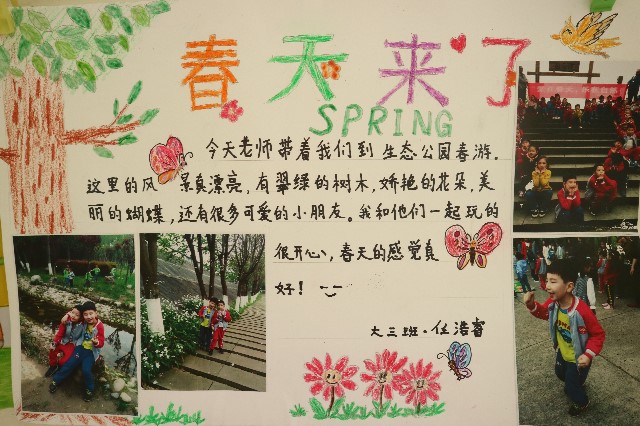 春天来了
SPRING
今天老师带着我们到生态公园春游。
这里的风景真漂亮,有翠绿的树木,娇艳的花朵,美
丽的蝴蝶,还有很多可爱的小朋友。我和他们一起玩的
很开心,春天的感觉真
好!
大三班·任浩睿